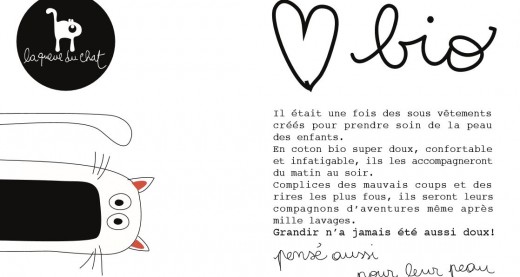 la queue du chat
bio
Il était une fois des sous vêtements
créés pour prendre soin de la peau
des enfants.
En coton bio super doux, confortable
et infatigable, ils les accompagneront
du matin au soir.
Complices des mauvais coups et des
rires les plus fous, ils seront leurs
compagnons d'aventures même après
mille lavages.
Grandir n'a jamais été aussi doux!
pensé aussi
pour leur peau